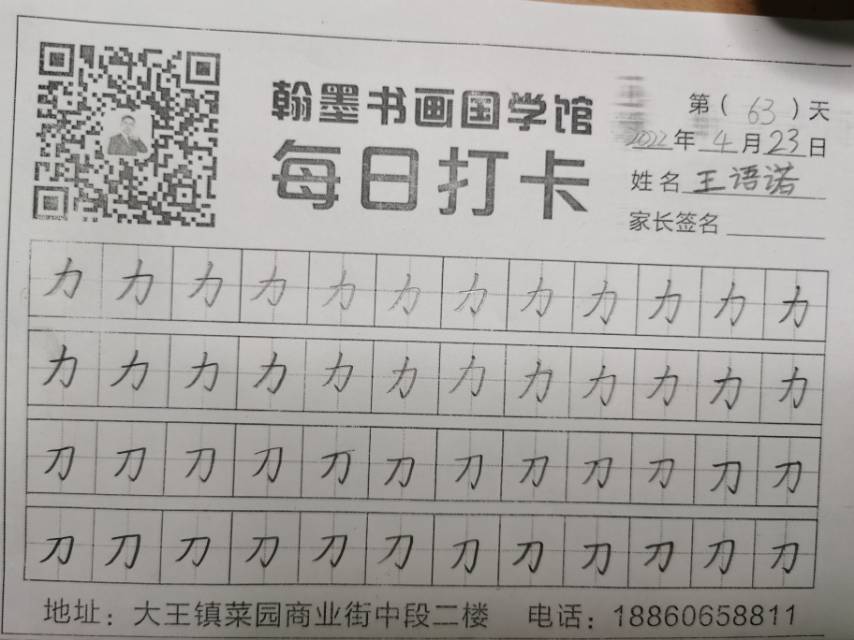 翰墨书画国学馆
每日打卡
第（63）天
2022年4月23日
姓名 王语诺
家长签名
力力力力力力力力力力力力
力力力力力力力力力力力力
刀刀刀刀刀刀刀刀刀刀刀刀
刀刀刀刀刀刀刀刀刀刀刀刀
地址：大王镇菜园商业街中段二楼 电话：18860658811